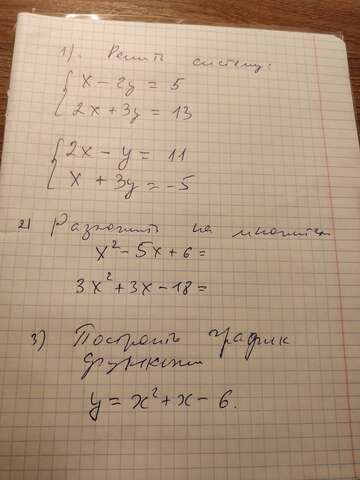 1). Решить систему:
x - 2y = 5
2x + 3y = 13
2x - y = 11
x + 3y = -5
2) Разложить на множители
x² - 5x + 6 =
3x² + 3x - 18 =
3) Построить график
функции
y = x² + x - 6.